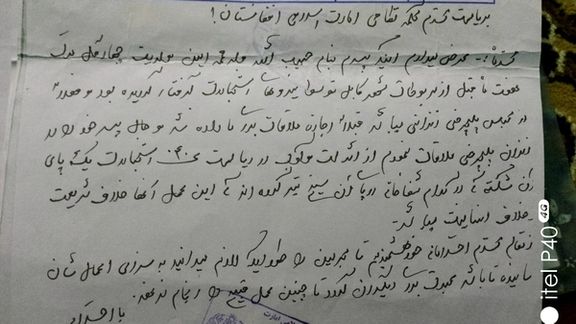 بریاست محترم محکمه نظامی امارت اسلامی افغانستان!
محترما: عرض میدارم اینکه پسرم بنام حبیب الله ولد محمد امین ولدیت چهار قبل مدت
هفت ماه قبل از مربوطات شهر کابل توسط نیروها استخبارات گرفتار گردیده بود و فعلاً
در محبس پلچرخی زندانی میباشد قبلاً اجازه ملاقات برایم داده شد و حال پسر خود را در
زندان پلچرخی ملاقات نمودم از اثر لت و کوب در ریاست ۰۴۰ استخبارات یک پای
آن شکسته که در شفاخانه در پا آن سیخ تیر کرده اند که این عمل آنها خلاف شریعت
خلاف انسانیت میباشد.
از مقام محترم احترامانه خواهشمندیم تا مجرمین را طوریکه لازم میدانید به سزای اعمال شان
رسانیده تا باشد عبرت برای دیگران گردد تا چنین عمل قبیح را انجام ندهند.
با احترام
itel P40 4G